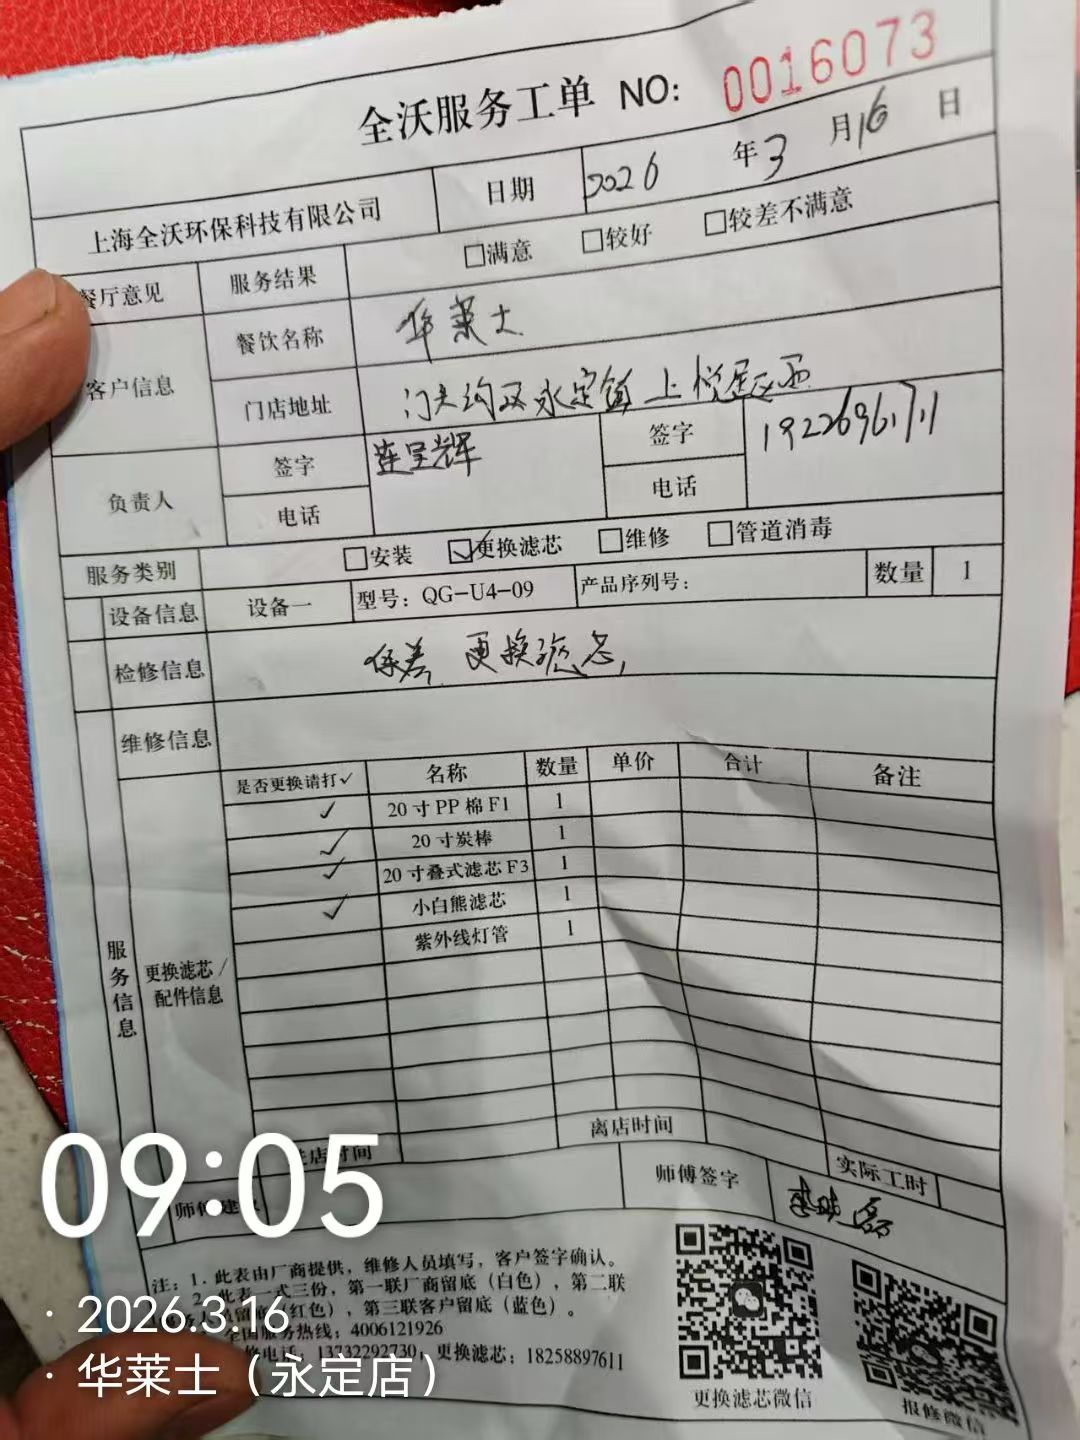 全沃服务工单 NO: 0016073
上海全沃环保科技有限公司 日期 2026 年 3 月 16 日
餐厅意见 服务结果 □满意 □较好 □较差不满意
客户信息 餐饮名称 华莱士
门店地址 门头沟区永定镇上悦居
负责人 签字 签字 19226961711
电话 电话
服务类别 □安装 ☑更换滤芯 □维修 □管道消毒
设备信息 设备一 型号: QG-U4-09 产品序列号: 数量 1
检修信息 保养 更换滤芯,
维修信息
服务信息
更换滤芯/配件信息
是否更换请打✓ 名称 数量 单价 合计 备注
✓ 20寸PP棉F1 1
✓ 20寸炭棒 1
✓ 20寸叠式滤芯F3 1
✓ 小白熊滤芯 1
紫外线灯管 1
店时间 离店时间 实际工时
师傅建议 师傅签字
注: 1. 此表由厂商提供，维修人员填写，客户签字确认。
2. 此表一式三份，第一联厂商留底（白色），第二联
员留底（红色），第三联客户留底（蓝色）。
全国服务热线: 4006121926
修电话: 13732292730, 更换滤芯: 18258897611
更换滤芯微信 报修微信
09:05
· 2026.3.16
· 华莱士（永定店）